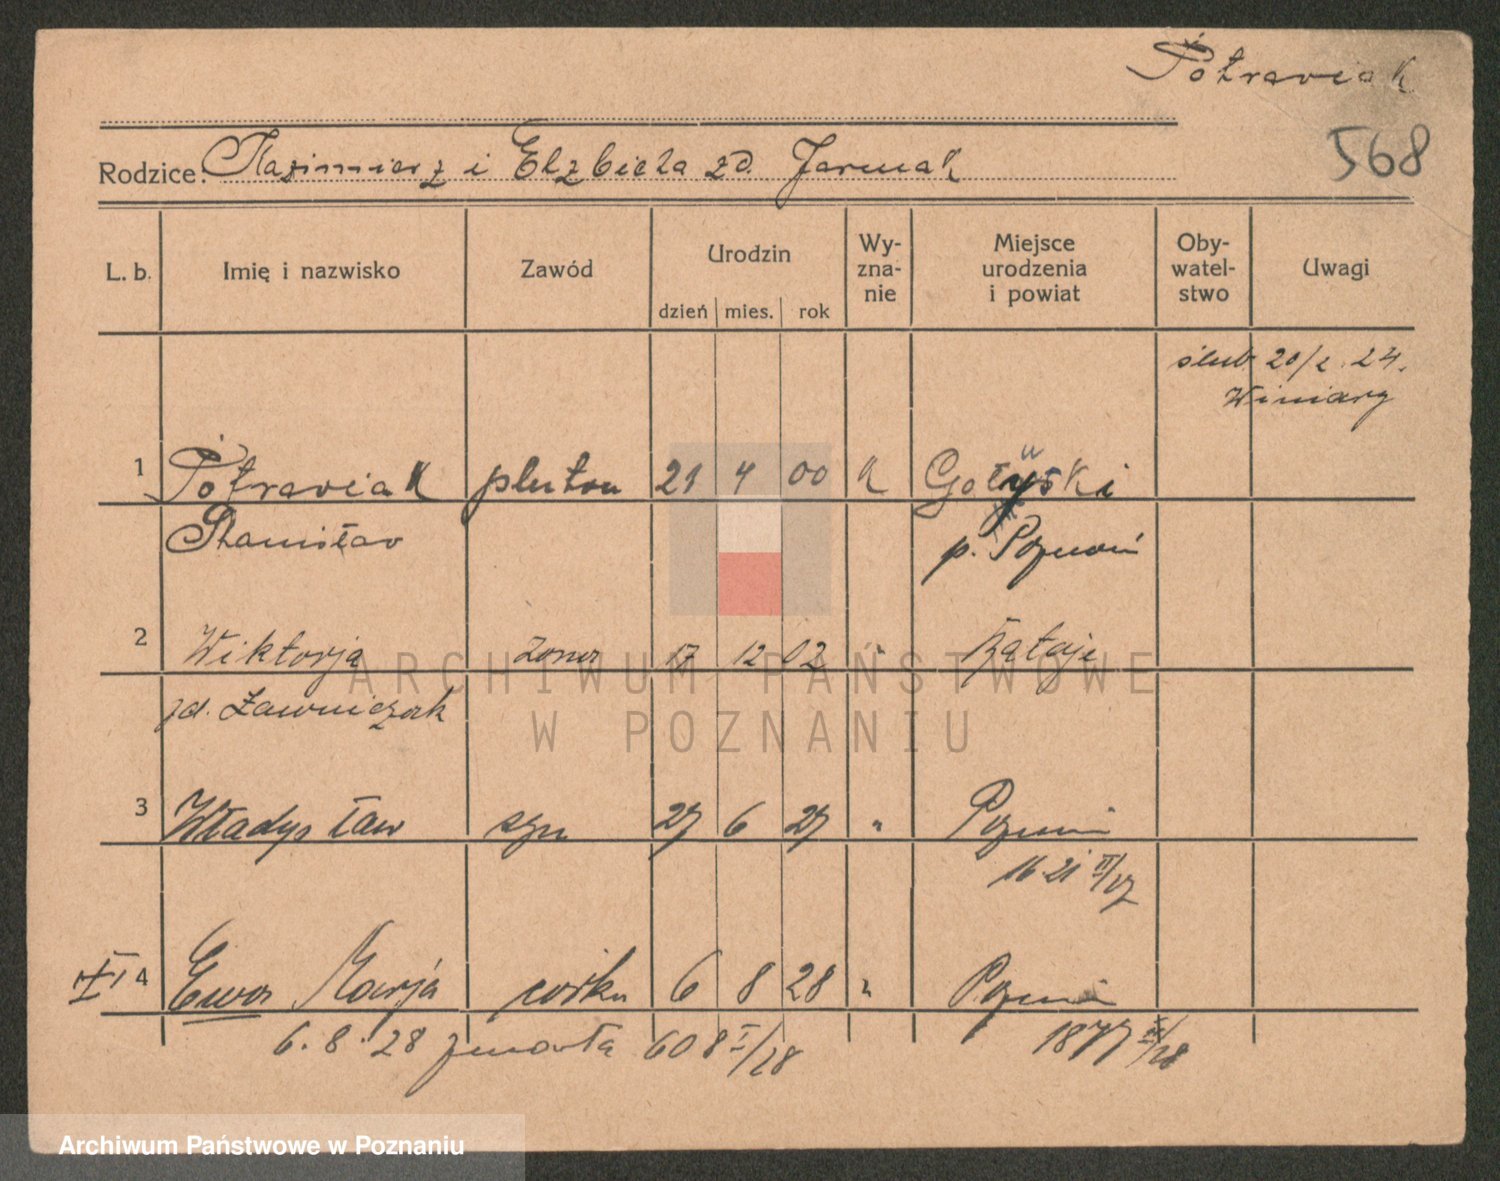 Potraviak
568
Rodzice: Kazimierz i Elzbieta zd. Jarmak
L. b. Imię i nazwisko Zawód Urodzin dzień mies. rok Wy-zna-nie Miejsce urodzenia i powiat Oby-watel-stwo Uwagi
ślub 20/2. 24.
Winiary
1 Potraviak pluton 21 4 00 k
Stanisław p. Poznań
2 Wiktorja żona 17 12 02 " Rataje
zd. Ławniczak
3 Władysław syn 27 6 27 " Poznań
16 21 III/27
4 Ewa Marja córka 6 8 28 " Poznań
6. 8. 28 zmarła 608 I/28 1877
ARCHIWUM PAŃSTWOWE
W POZNANIU
Archiwum Państwowe w Poznaniu